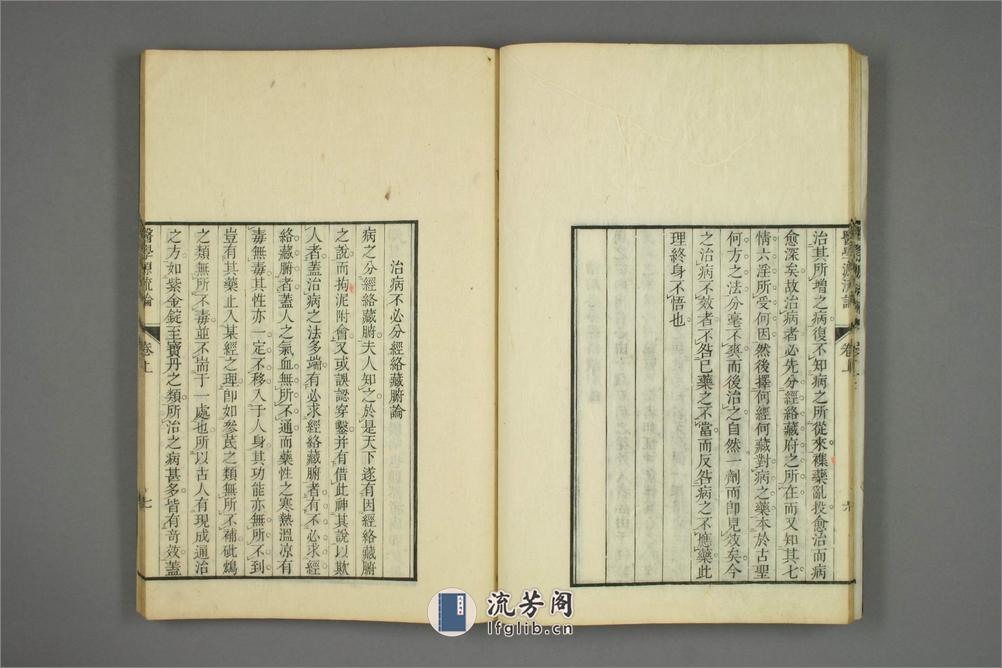 治其所增之病復不知病之所從來襍藥亂投愈治而病
愈深矣故治病者必先分經絡藏府之所在而又知其七
情六淫所受何因然後擇何經何藏對病之藥本於古聖
何方之法分毫不爽而後治之自然一劑而卽見效矣今
之治病不效者不咎已藥之不當而反咎病之不應藥此
理終身不悟也
醫學源流論
卷上
六
治病不必分經絡藏腑論
病之分經絡藏腑夫人知之於是天下遂有因經絡藏腑
之說而拘泥附會又或誤認穿鑿并有借此神其說以欺
人者蓋治病之法多端有必求經絡藏腑者有不必求經
絡藏腑者蓋人之氣血無所不通而藥性之寒熱溫凉有
毒無毒其性亦一定不移入于人身其功能亦無所不到
豈有其藥止入某經之理卽如參芪之類無所不補砒鴆
之類無所不毒並不耑于一處也所以古人有現成通治
之方如紫金錠至寶丹之類所治之病甚多皆有奇效蓋
醫學源流論
卷上
七
流芳阁
lfglib.cn